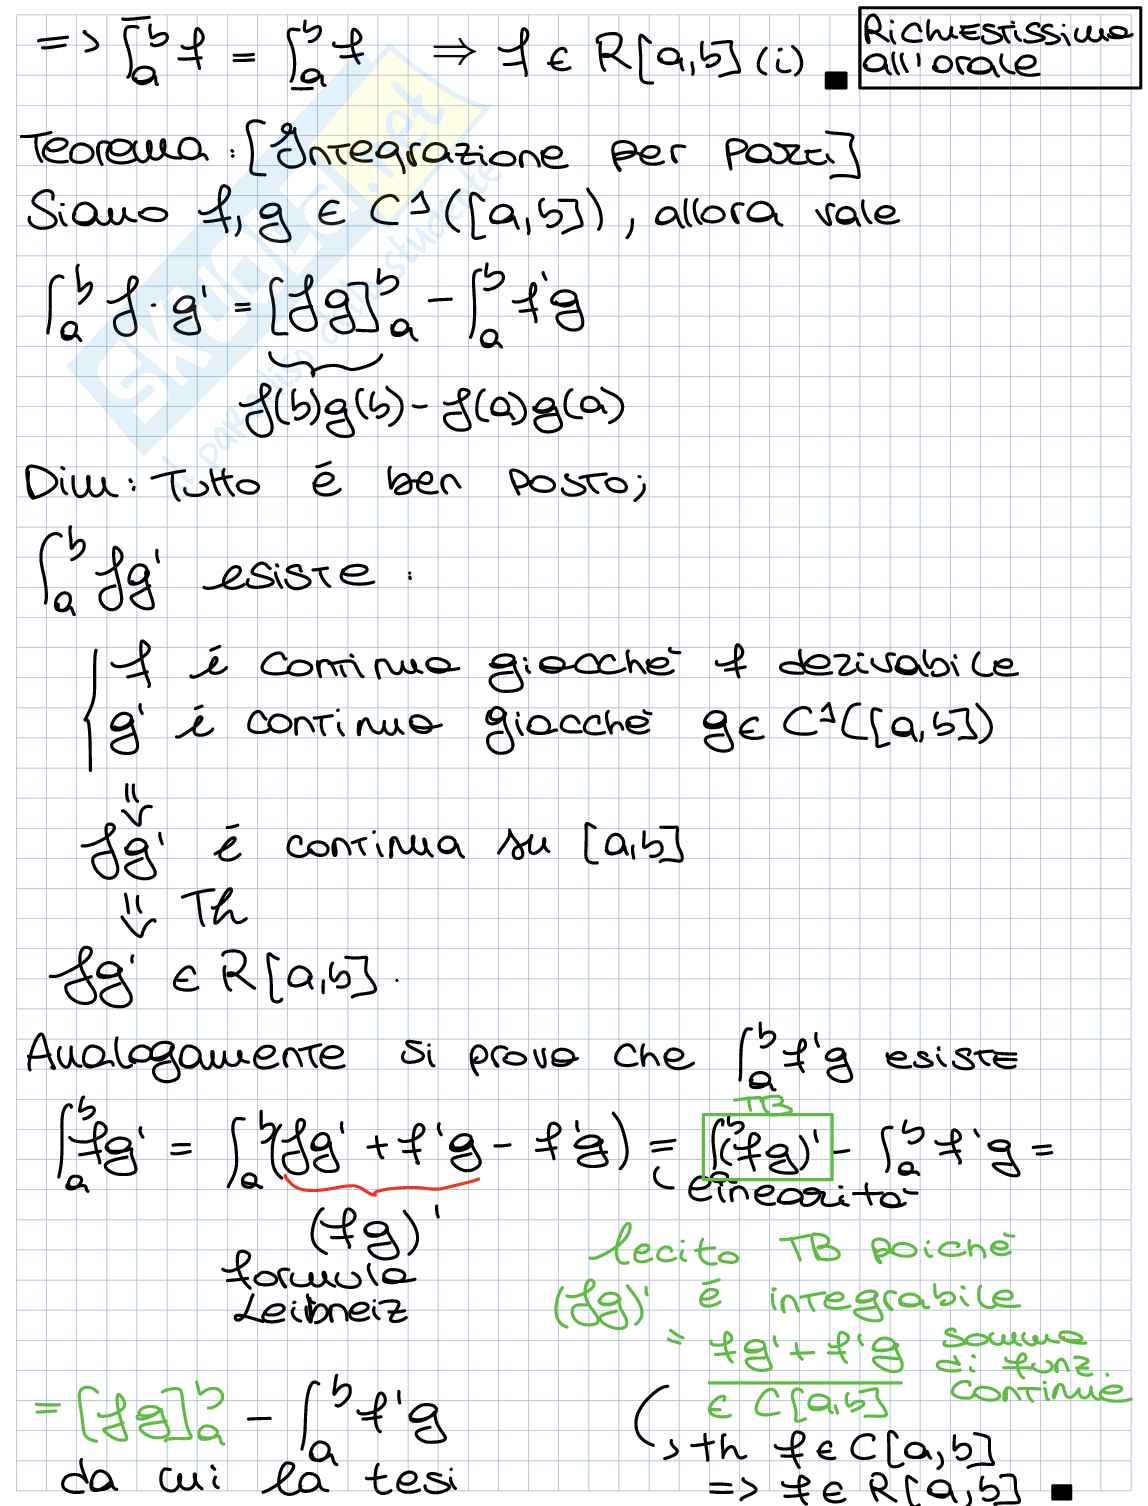 => ∫̅ₐᵇ f = ∫̲ₐᵇ f ⇒ f ∈ R[a,b] (i) ■
Richiestissima
all'orale
Teorema: [Integrazione per parti]
Siano f, g ∈ C¹([a,b]), allora vale
∫ₐᵇ f·g' = [fg]ₐᵇ - ∫ₐᵇ f'g
f(b)g(b) - f(a)g(a)
Dim: Tutto é ben posto;
∫ₐᵇ fg' esiste:
f é continua giacché f derivabile
g' é continua giacché g ∈ C¹([a,b])
⇓
fg' é continua su [a,b]
⇓ Th
fg' ∈ R[a,b].
Analogamente si prova che ∫ₐᵇ f'g esiste
TB
∫ₐᵇ fg' = ∫ₐᵇ (fg' + f'g - f'g) = ∫ᵇ(fg)' - ∫ₐᵇ f'g =
linearità
(fg)'
formula
Leibneiz
lecito TB poiché
(fg)' é integrabile
= fg' + f'g somma
di funz.
continue
∈ C[a,b]
= [fg]ₐᵇ - ∫ₐᵇ f'g
th f ∈ C[a,b]
da cui la tesi
=> f ∈ R[a,b] ■
skuola.net